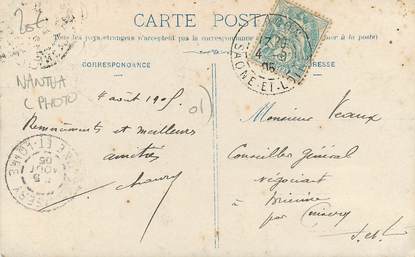 20€
NANTUA
(PHOTO)
01
CARTE POSTALE
Tous les pays étrangers n'acceptent pas la correspondance au à la poste)
CORRESPONDANCE
ADRESSE
SAONE-ET-LOIRE
05
4 août 1905
Remerciements et meilleurs
amitiés
Monsieur Veaux
Conseiller général
négociant
à Brienne
par Cuisery
S. et L.
CUISERY
SAONE-ET-LOIRE
5
AOUT
05